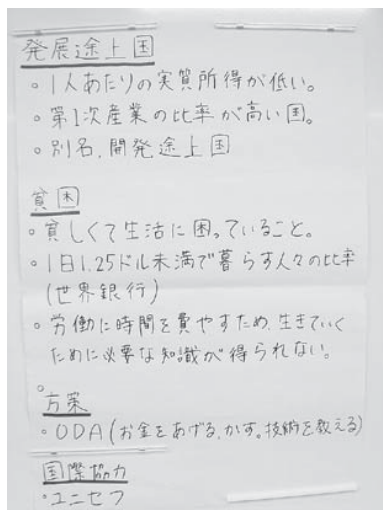 発展途上国
・1人あたりの実質所得が低い。
・第1次産業の比率が高い国。
・別名,開発途上国
貧困
・貧しくて生活に困っていること。
・1日1.25ドル未満で暮らす人々の比率
(世界銀行)
・労働に時間を費やすため,生きていく
ために必要な知識が得られない。
方策
・ODA(お金をあげる,かす。技術を教える)
国際協力
・ユニセフ